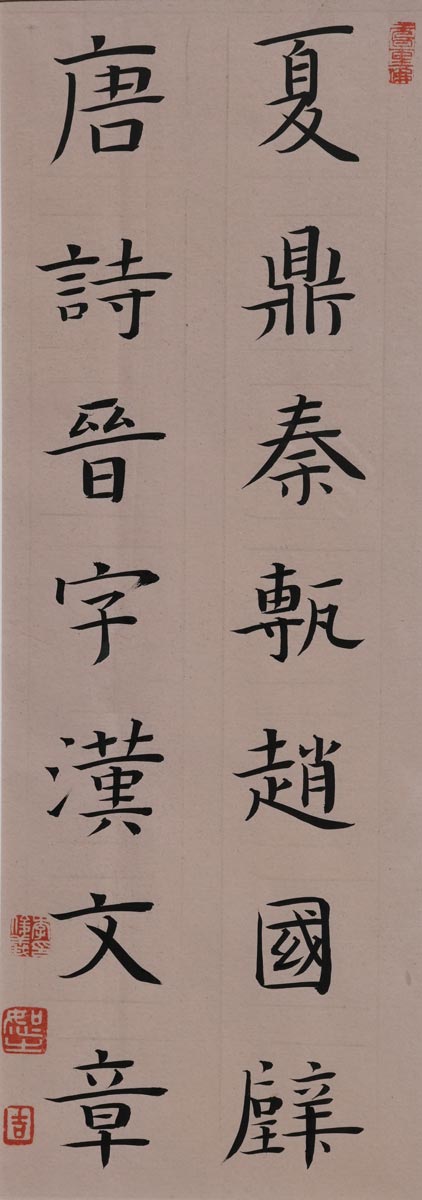 夏鼎秦甎趙國璧
唐詩晉字漢文章